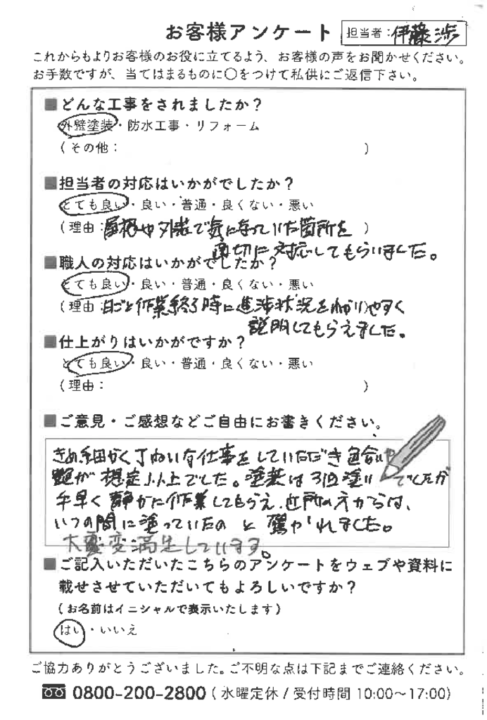 お客様アンケート 担当者：伊藤渉
これからもよりお客様のお役に立てるよう、お客様の声をお聞かせください。
お手数ですが、当てはまるものに〇をつけて私供にご返信下さい。
■どんな工事をされましたか？
外壁塗装・防水工事・リフォーム
（その他：　）
■担当者の対応はいかがでしたか？
とても良い・良い・普通・良くない・悪い
（理由：屋根や外装で気になっていた箇所を）
適切に対応してもらいました。
■職人の対応はいかがでしたか？
とても良い・良い・普通・良くない・悪い
（理由：日ごと作業終了時に進渉状況をわかりやすく
説明してもらえました。
■仕上がりはいかがですか？
とても良い・良い・普通・良くない・悪い
（理由：　）
■ご意見・ご感想などご自由にお書きください。
きめ細かく丁ねいな仕事をしていただき色合いや
艶が想定以上でした。塗装は3回塗りでしたが
手早く静かに作業してもらえ、近所の方からは、
いつの間に塗っていたのと驚かれました。
大変満足しています。
■ご記入いただいたこちらのアンケートをウェブや資料に
載せさせていただいてもよろしいですか？
（お名前はイニシャルで表示いたします）
はい・いいえ
ご協力ありがとうございました。ご不明な点は下記までご連絡ください。
0800-200-2800（水曜定休/受付時間 10:00～17:00）